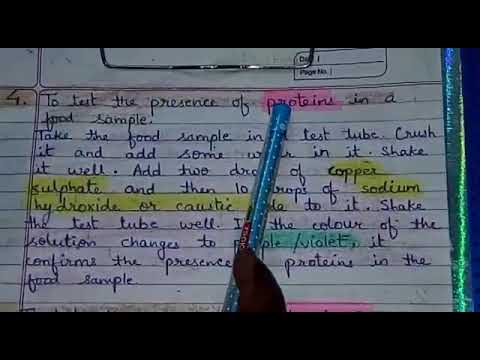 Date
Page No.
4. To test the presence of proteins in a
food sample.
Take the food sample in test tube. Crush
it and add some in it. Shake
it well. Add two of copper
sulphate and then 10 drops of sodium
hydroxide or caustic to it. Shake
the test tube well. the colour of the
solution changes to /violet, it
confirms the presence proteins in the
food sample.